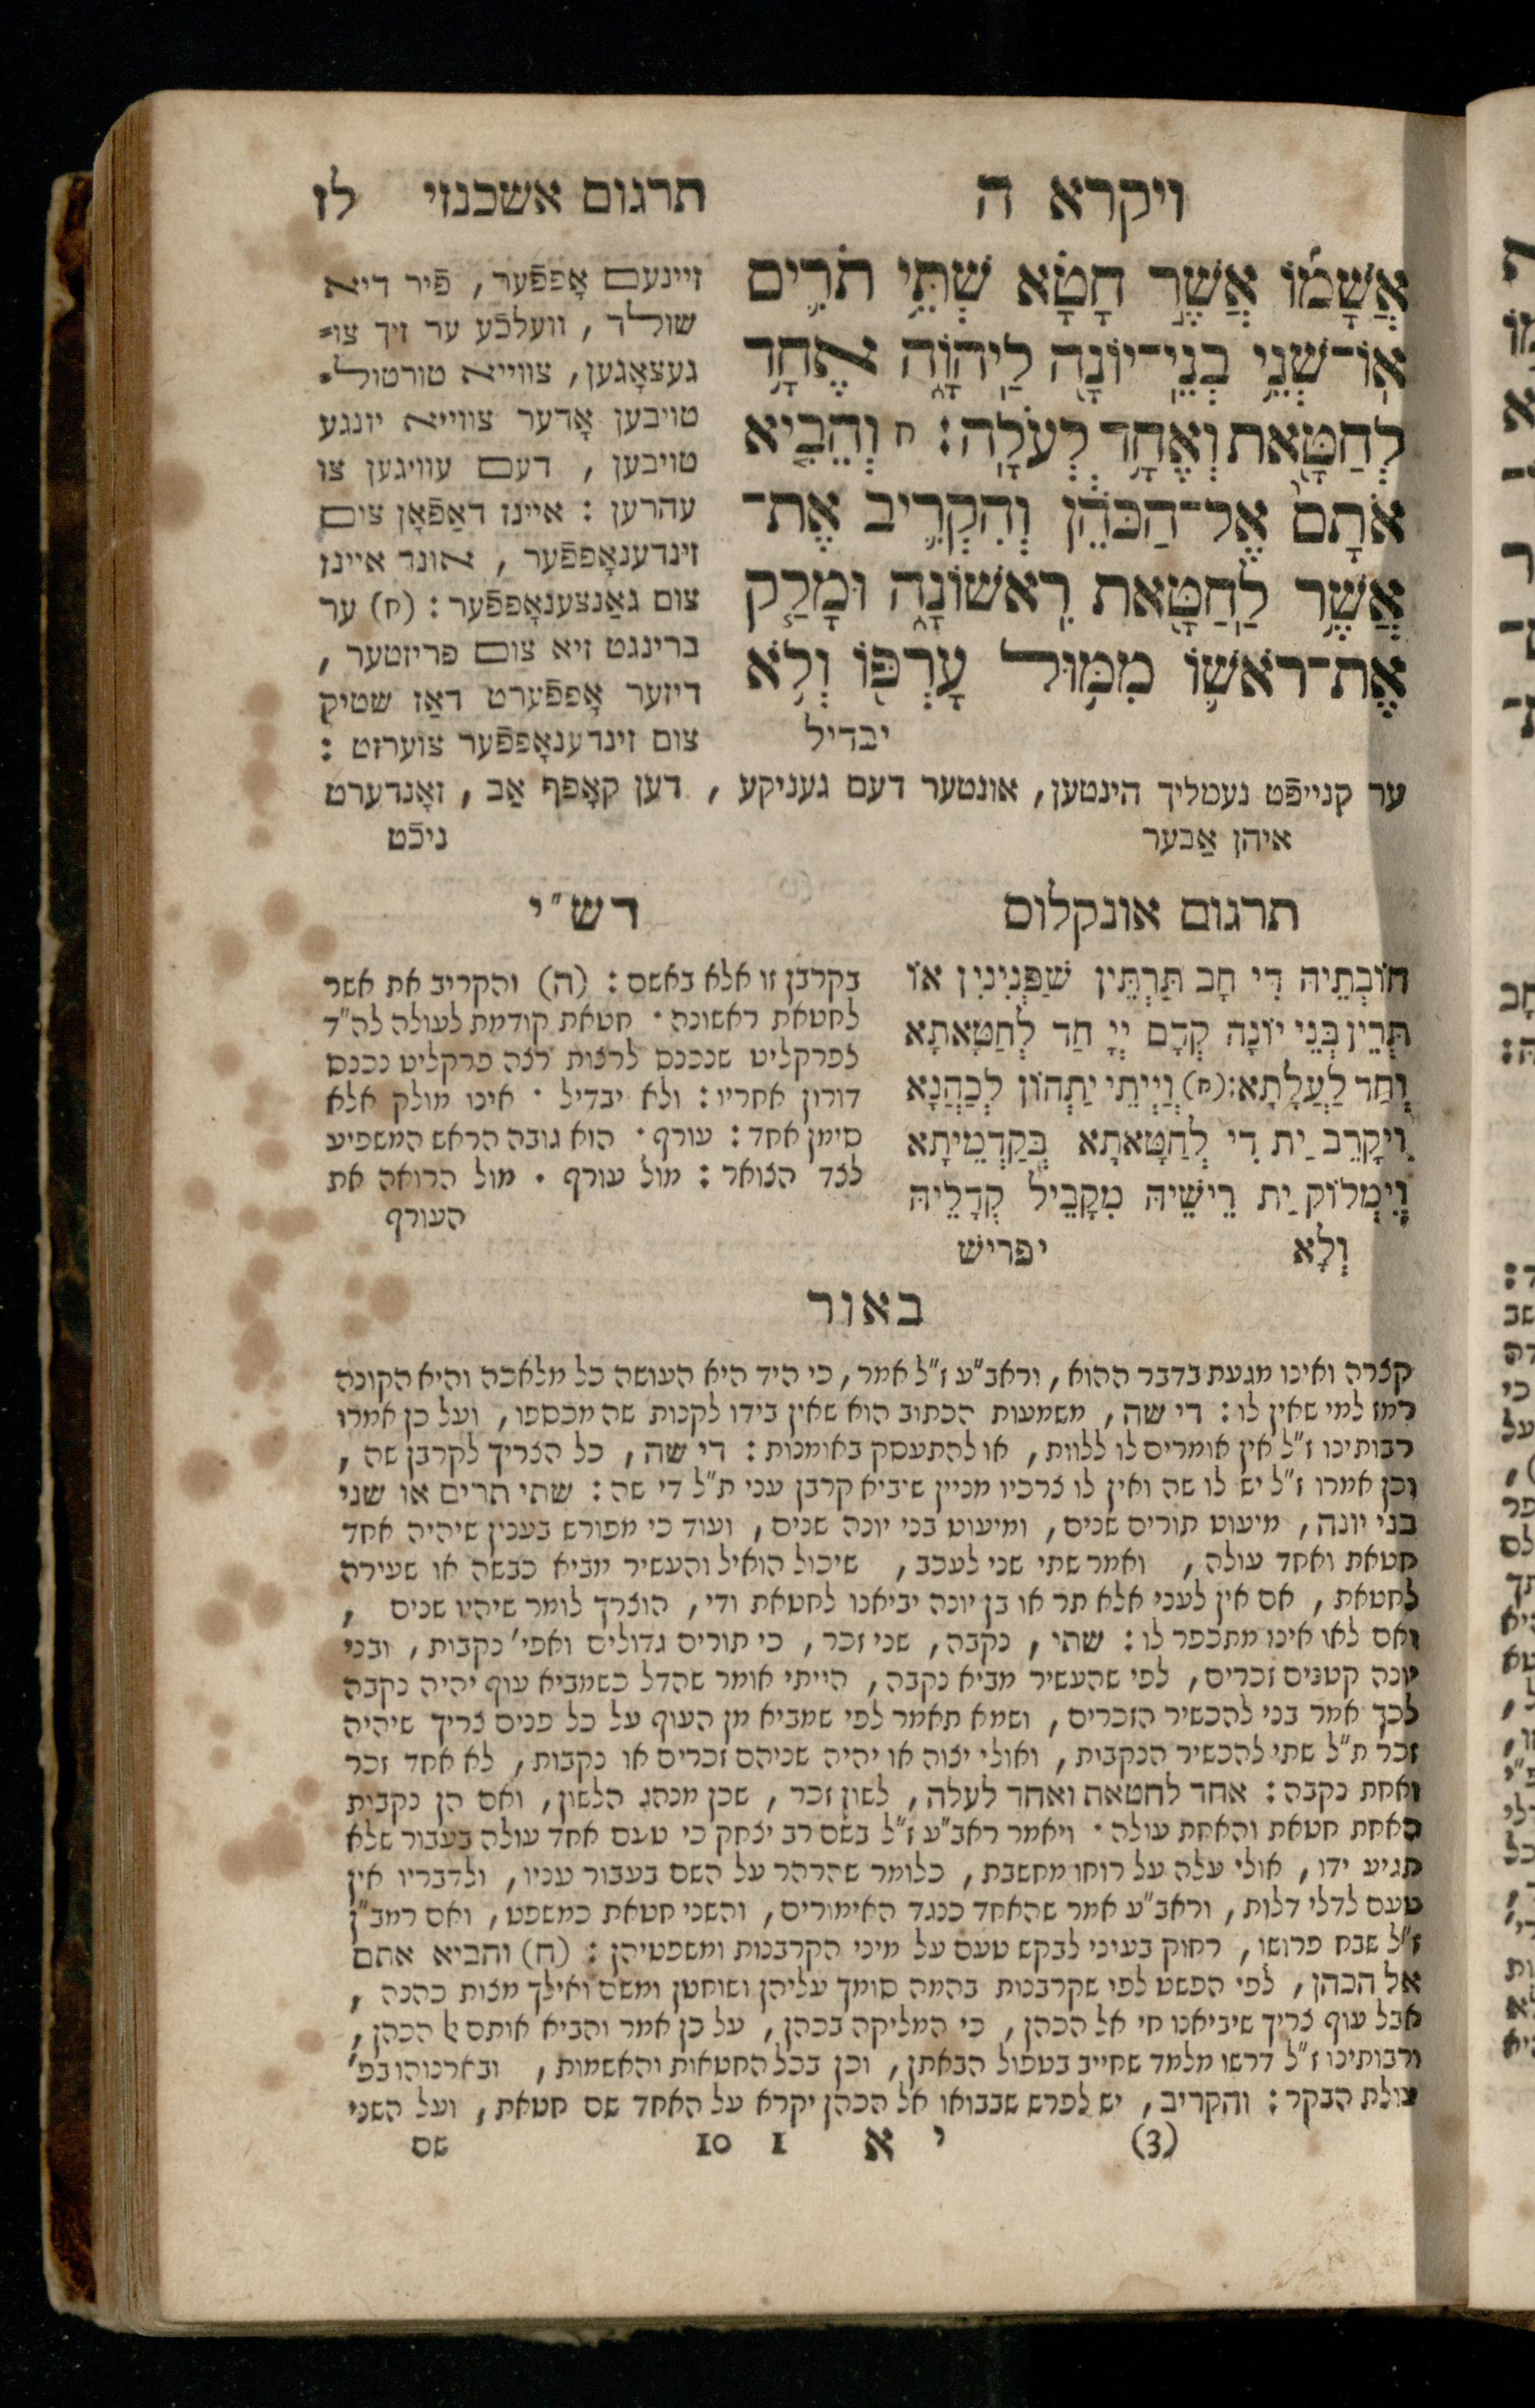 ויקרא ה
תרגום אשכנזי לז
אֲשָׁמ֜וֹ אֲשֶׁ֣ר חָטָ֗א שְׁתֵּ֥י תֹרִ֛ים
אֽוֹ־שְׁנֵ֥י בְנֵֽי־יוֹנָ֖ה לַֽיהוָֹ֑ה אֶחָ֥ד
לְחַטָּ֖את וְאֶחָ֥ד לְעֹלָֽה׃ ח וְהֵבִ֤יא
אֹתָם֙ אֶל־הַכֹּהֵ֔ן וְהִקְרִ֛יב אֶת־
אֲשֶׁ֥ר לַֽחַטָּ֖את רִֽאשׁוֹנָ֑ה וּמָלַ֧ק
אֶת־רֹאשׁ֛וֹ מִמּ֥וּל עָרְפּ֖וֹ וְלֹ֥א
יבדיל
זיינעם אָפפֿער, פֿיר דיא
שולד, וועלכֿע ער זיך צו⸗
געצאָגען, צווייא טורטול⸗
טויבען אָדער צווייא יונגע
טויבען, דעם עוויגען צו
עהרען: איינז דאַפֿאָן צום
זינדענאָפפֿער, אונד איינז
צום גאַנצענאָפפֿער: (ח) ער
ברינגט זיא צום פריזטער,
דיזער אָפפֿערט דאַז שטיק
צום זינדענאָפפֿער צוערזט:
ער קנייפֿט נעמליך הינטען, אונטער דעם געניקע, דען קאָפף אַב, זאָנדערט
איהן אַבער ניכֿט
תרגום אונקלוס
חוֹבְתֵיהּ דִּי חָב תַּרְתֵּין שַׁפְנִינִין אוֹ
תְּרֵין בְּנֵי יוֹנָה קְדָם יְיָ חַד לְחַטָּאתָא
וְחַד לַעֲלָתָא: (ח) וְיַיְתֵי יַתְהוֹן לְכַהֲנָא
וִיקָרֵב יַת דִּי לְחַטָּאתָא בְּקַדְמֵיתָא
וְיִמְלוֹק יַת רֵישֵׁיהּ מִקֳּבֵיל קְדָלֵיהּ
וְלָא יפריש
רש"י
בקרבן זו אלא באשם: (ה) והקריב את אשר
לחטאת ראשונה· חטאת קודמת לעולה לה"ד
לפרקליט שנכנס לרצות רצה פרקליט נכנס
דורון אחריו: ולא יבדיל· אינו מולק אלא
סימן אחד: עורף· הוא גובה הראש המשפיע
לצד הצואר: מול עורף· מול הרואה את
העורף
באור
קצרה ואינו מגעת בדבר ההוא, וראב"ע ז"ל אמר, כי היד היא העושה כל מלאכה והיא הקונה
רמז למי שאין לו: די שה, משמעות הכתוב הוא שאין בידו לקנות שה מכספו, ועל כן אמרו
רבותינו ז"ל אין אומרים לו ללוות, או להתעסק באומנות: די שה, כל הצריך לקרבן שה,
וכן אמרו ז"ל יש לו שה ואין לו צרכיו מניין שיביא קרבן עני ת"ל די שה: שתי תרים או שני
בני יונה, מיעוט תורים שנים, ומיעוט בני יונה שנים, ועוד כי מפורש בענין שיהיה אחד
חטאת ואחד עולה, ואמר שתי שני לעכב, שיכול הואיל והעשיר מביא כבשה או שעירה
לחטאת, אם אין לעני אלא תר או בן יונה יביאנו לחטאת ודי, הוצרך לומר שיהיו שנים,
ואם לאו אינו מתכפר לו: שתי, נקבה, שני זכר, כי תורים גדולים ואפי' נקבות, ובני
יונה קטנים זכרים, לפי שהעשיר מביא נקבה, הייתי אומר שהדל כשמביא עוף יהיה נקבה
לכך אמר בני להכשיר הזכרים, ושמא תאמר לפי שמביא מן העוף על כל פנים צריך שיהיה
זכר ת"ל שתי להכשיר הנקבות, ואולי יצוה או יהיה שניהם זכרים או נקבות, לא אחד זכר
ואחת נקבה: אחד לחטאת ואחד לעלה, לשון זכר, שכן מנהג הלשון, ואם הן נקבות
האחת חטאת והאחת עולה· ויאמר ראב"ע ז"ל בשם רב יצחק כי טעם אחד עולה בעבור שלא
תגיע ידו, אולי עלה על רוחו מחשבת, כלומר שהרהר על השם בעבור עניו, ולדבריו אין
טעם לדלי דלות, וראב"ע אמר שהאחד כנגד האימורים, והשני חטאת כמשפט, ואם רמב"ן
ז"ל שבח פרושו, רחוק בעיני לבקש טעם על מיני הקרבנות ומשפטיהן: (ח) והביא אתם
אל הכהן, לפי הפשט לפי שקרבנות בהמה סומך עליהן ושוחטן ומשם ואילך מצות כהנה,
אבל עוף צריך שיביאנו חי אל הכהן, כי המליקה בכהן, על כן אמר והביא אותם אל הכהן,
ורבותינו ז"ל דרשו מלמד שחייב בטפול הבאתן, וכן בכל החטאות והאשמות, ובארנוהו בפ'
עולת הבקר: והקריב, יש לפרש שבבואו אל הכהן יקרא על האחד שם חטאת, ועל השני
(3) י א 1 10 שם